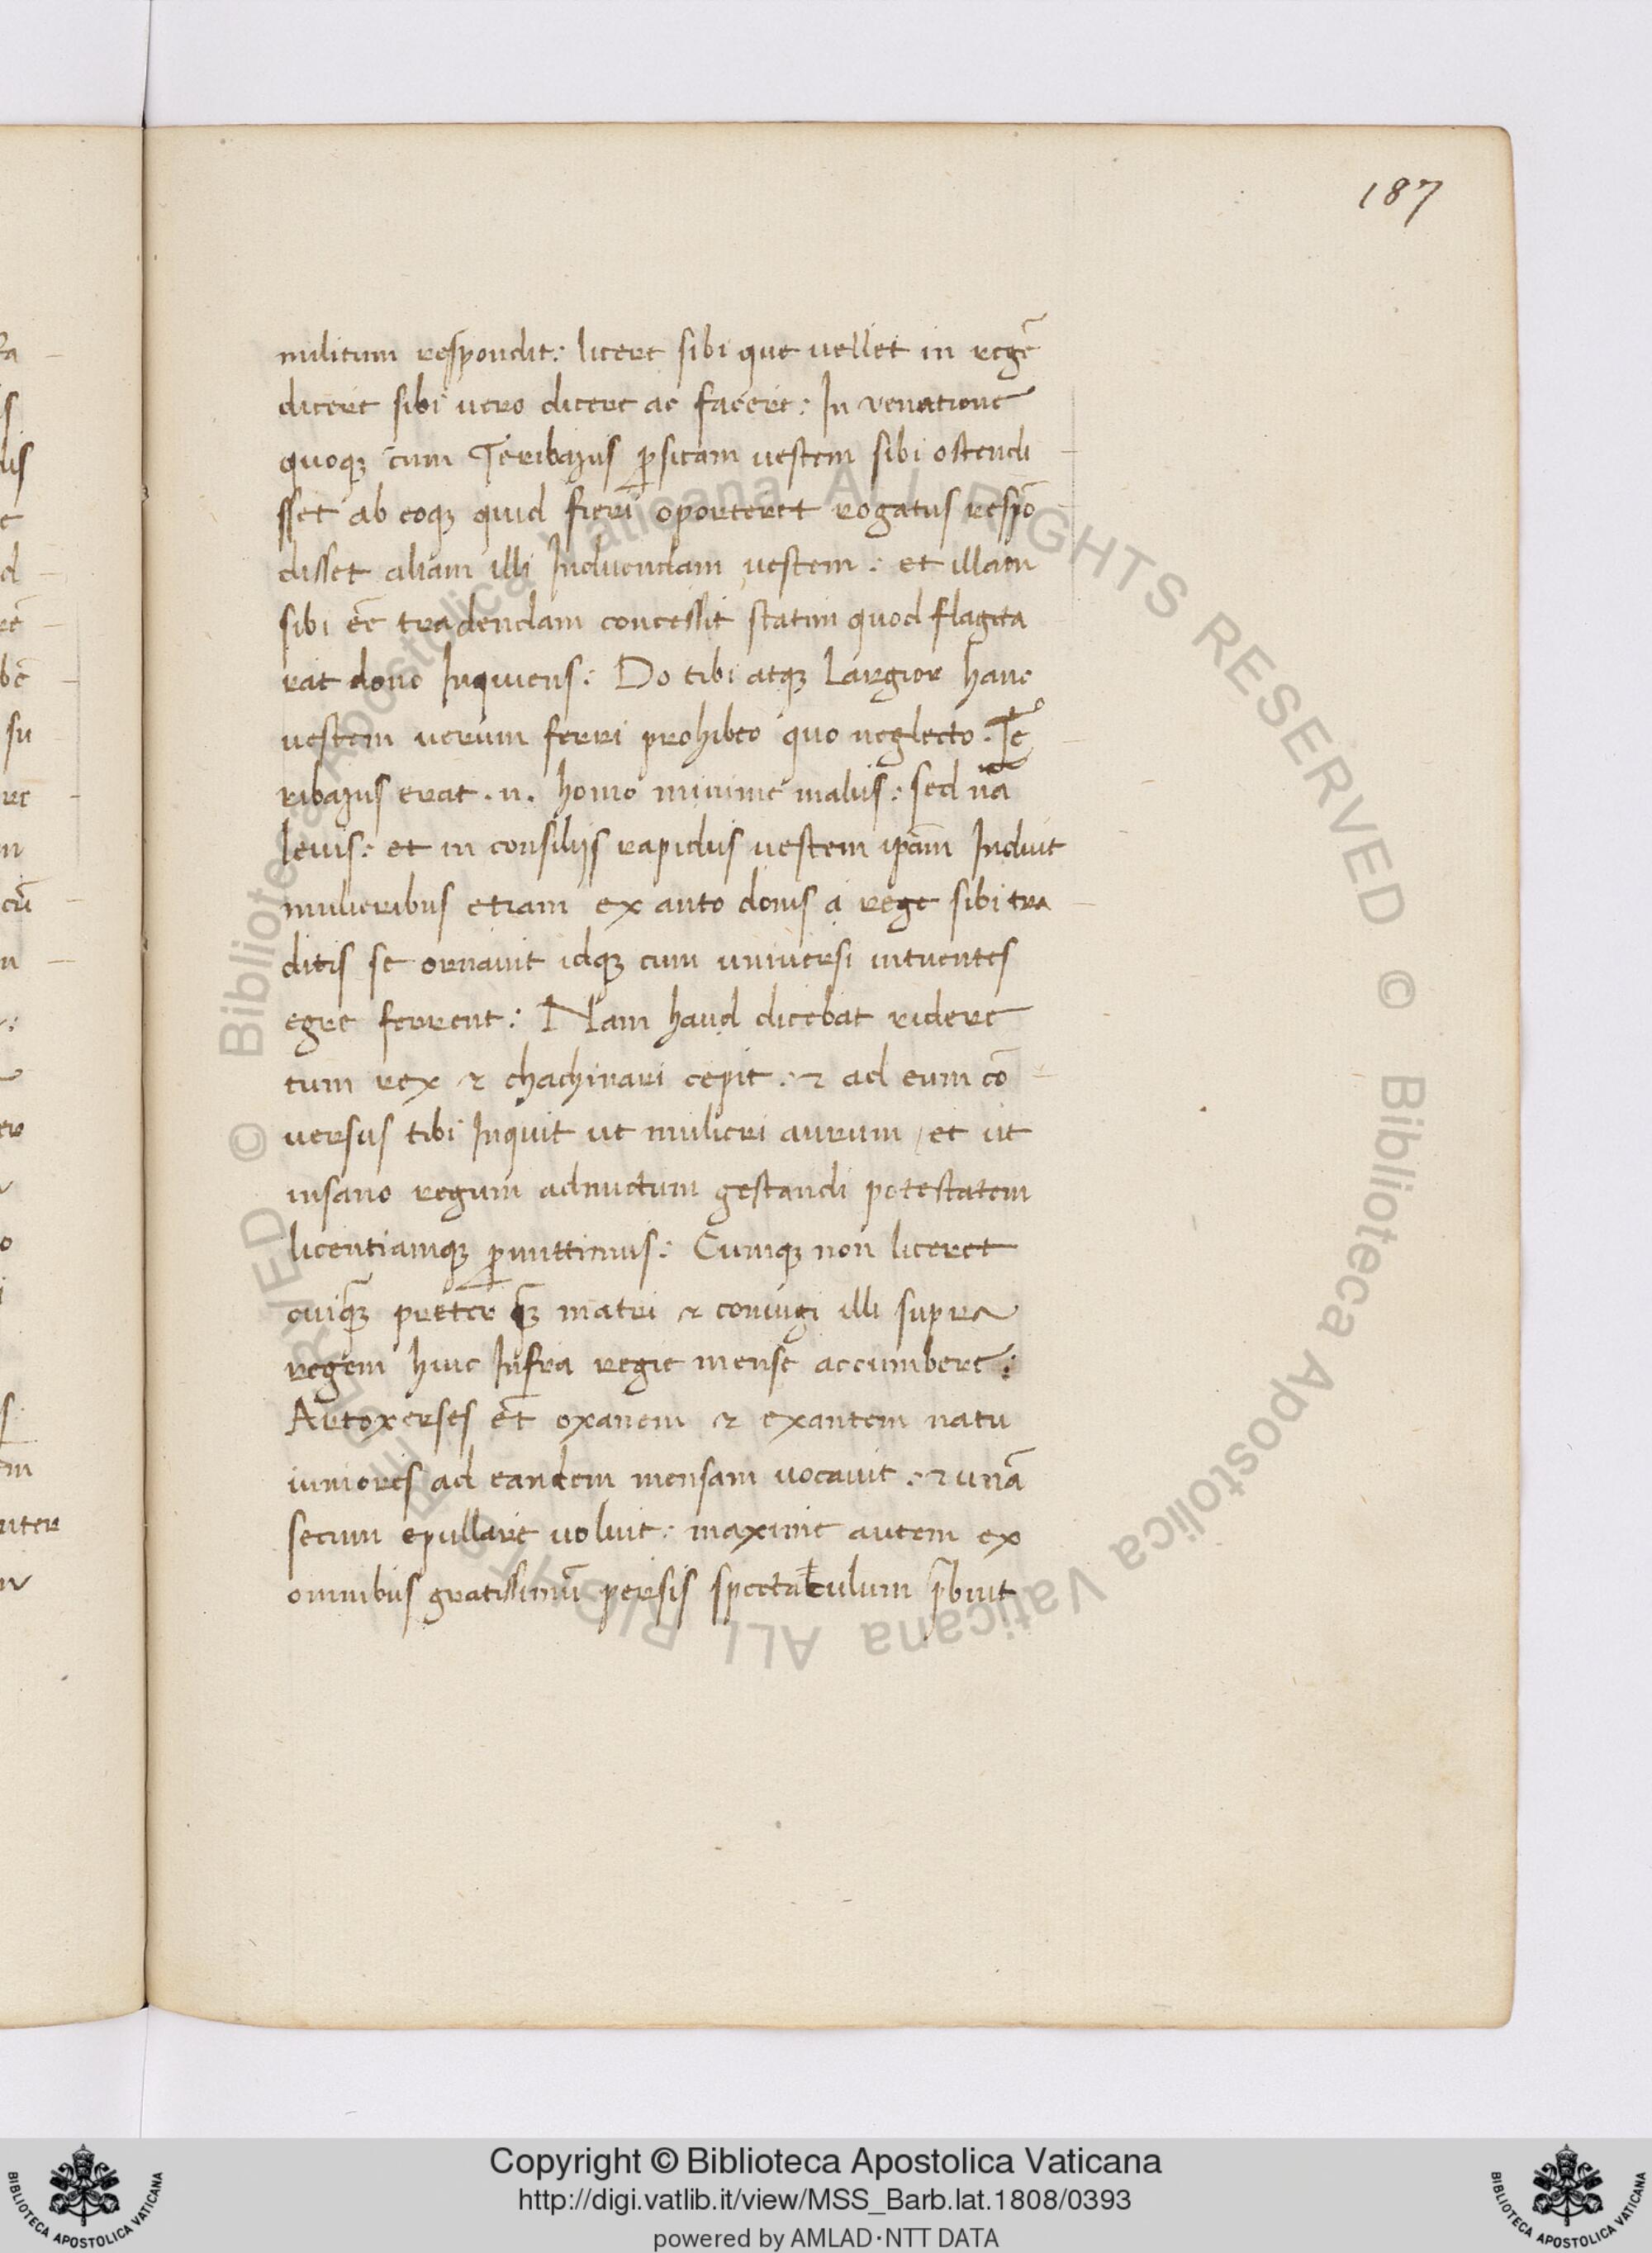 187
militum respondit: licere sibi que vellet in regē
dicere sibi uero dicere ac facere: In venatione
quoqꝫ cum Teribazus ꝑsicam uestem sibi ostendi
sset ab eoqꝫ quid fieri oporteret rogatus respō
disset aliam illi Induendam uestem: et illam
sibi eē tradendam concessit statim quod flagita
rat dono Inquiens: Do tibi atqꝫ Largior hanc
uestem uerum ferri prohibeo quo neglecto. Te
ribazus erat .n. homo minime malus: sed nā
leuis: et in consilijs rapidus uestem ipam̄ Induit
mulieribus etiam ex auto donis a rege sibi tra
ditis se ornauit idqꝫ cum uniuersi intuentes
egre ferrent: Nam haud dicebat ridere
tum rex ⁊ chachinari cepit: ⁊ ad eum cō
uersus tibi Inquit ut mulieri aurum / et ut
insano regum admictum gestandi potestatem
licentiamqꝫ ꝑmittimus: Cumqꝫ non liceret
cuiqꝫ̄ preter qꝫ̄ matri ⁊ coniugi illi supra
regem huic Infra regie mense accumbere:
Artoxerses et̄ oxanem ⁊ exantem natu
iuniores ad eandem mensam uocauit: ⁊ unā
secum epullare uoluit: maxime autem ex
omnibus gratissimū persis spectaculum p̄buit
Copyright © Biblioteca Apostolica Vaticana
http://digi.vatlib.it/view/MSS_Barb.lat.1808/0393
powered by AMLAD·NTT DATA
BIBLIOTECA APOSTOLICA VATICANA
BIBLIOTECA APOSTOLICA VATICANA
© Biblioteca Apostolica Vaticana ALL RIGHTS RESERVED © Biblioteca Apostolica Vaticana ALL RIGHTS RESERVED